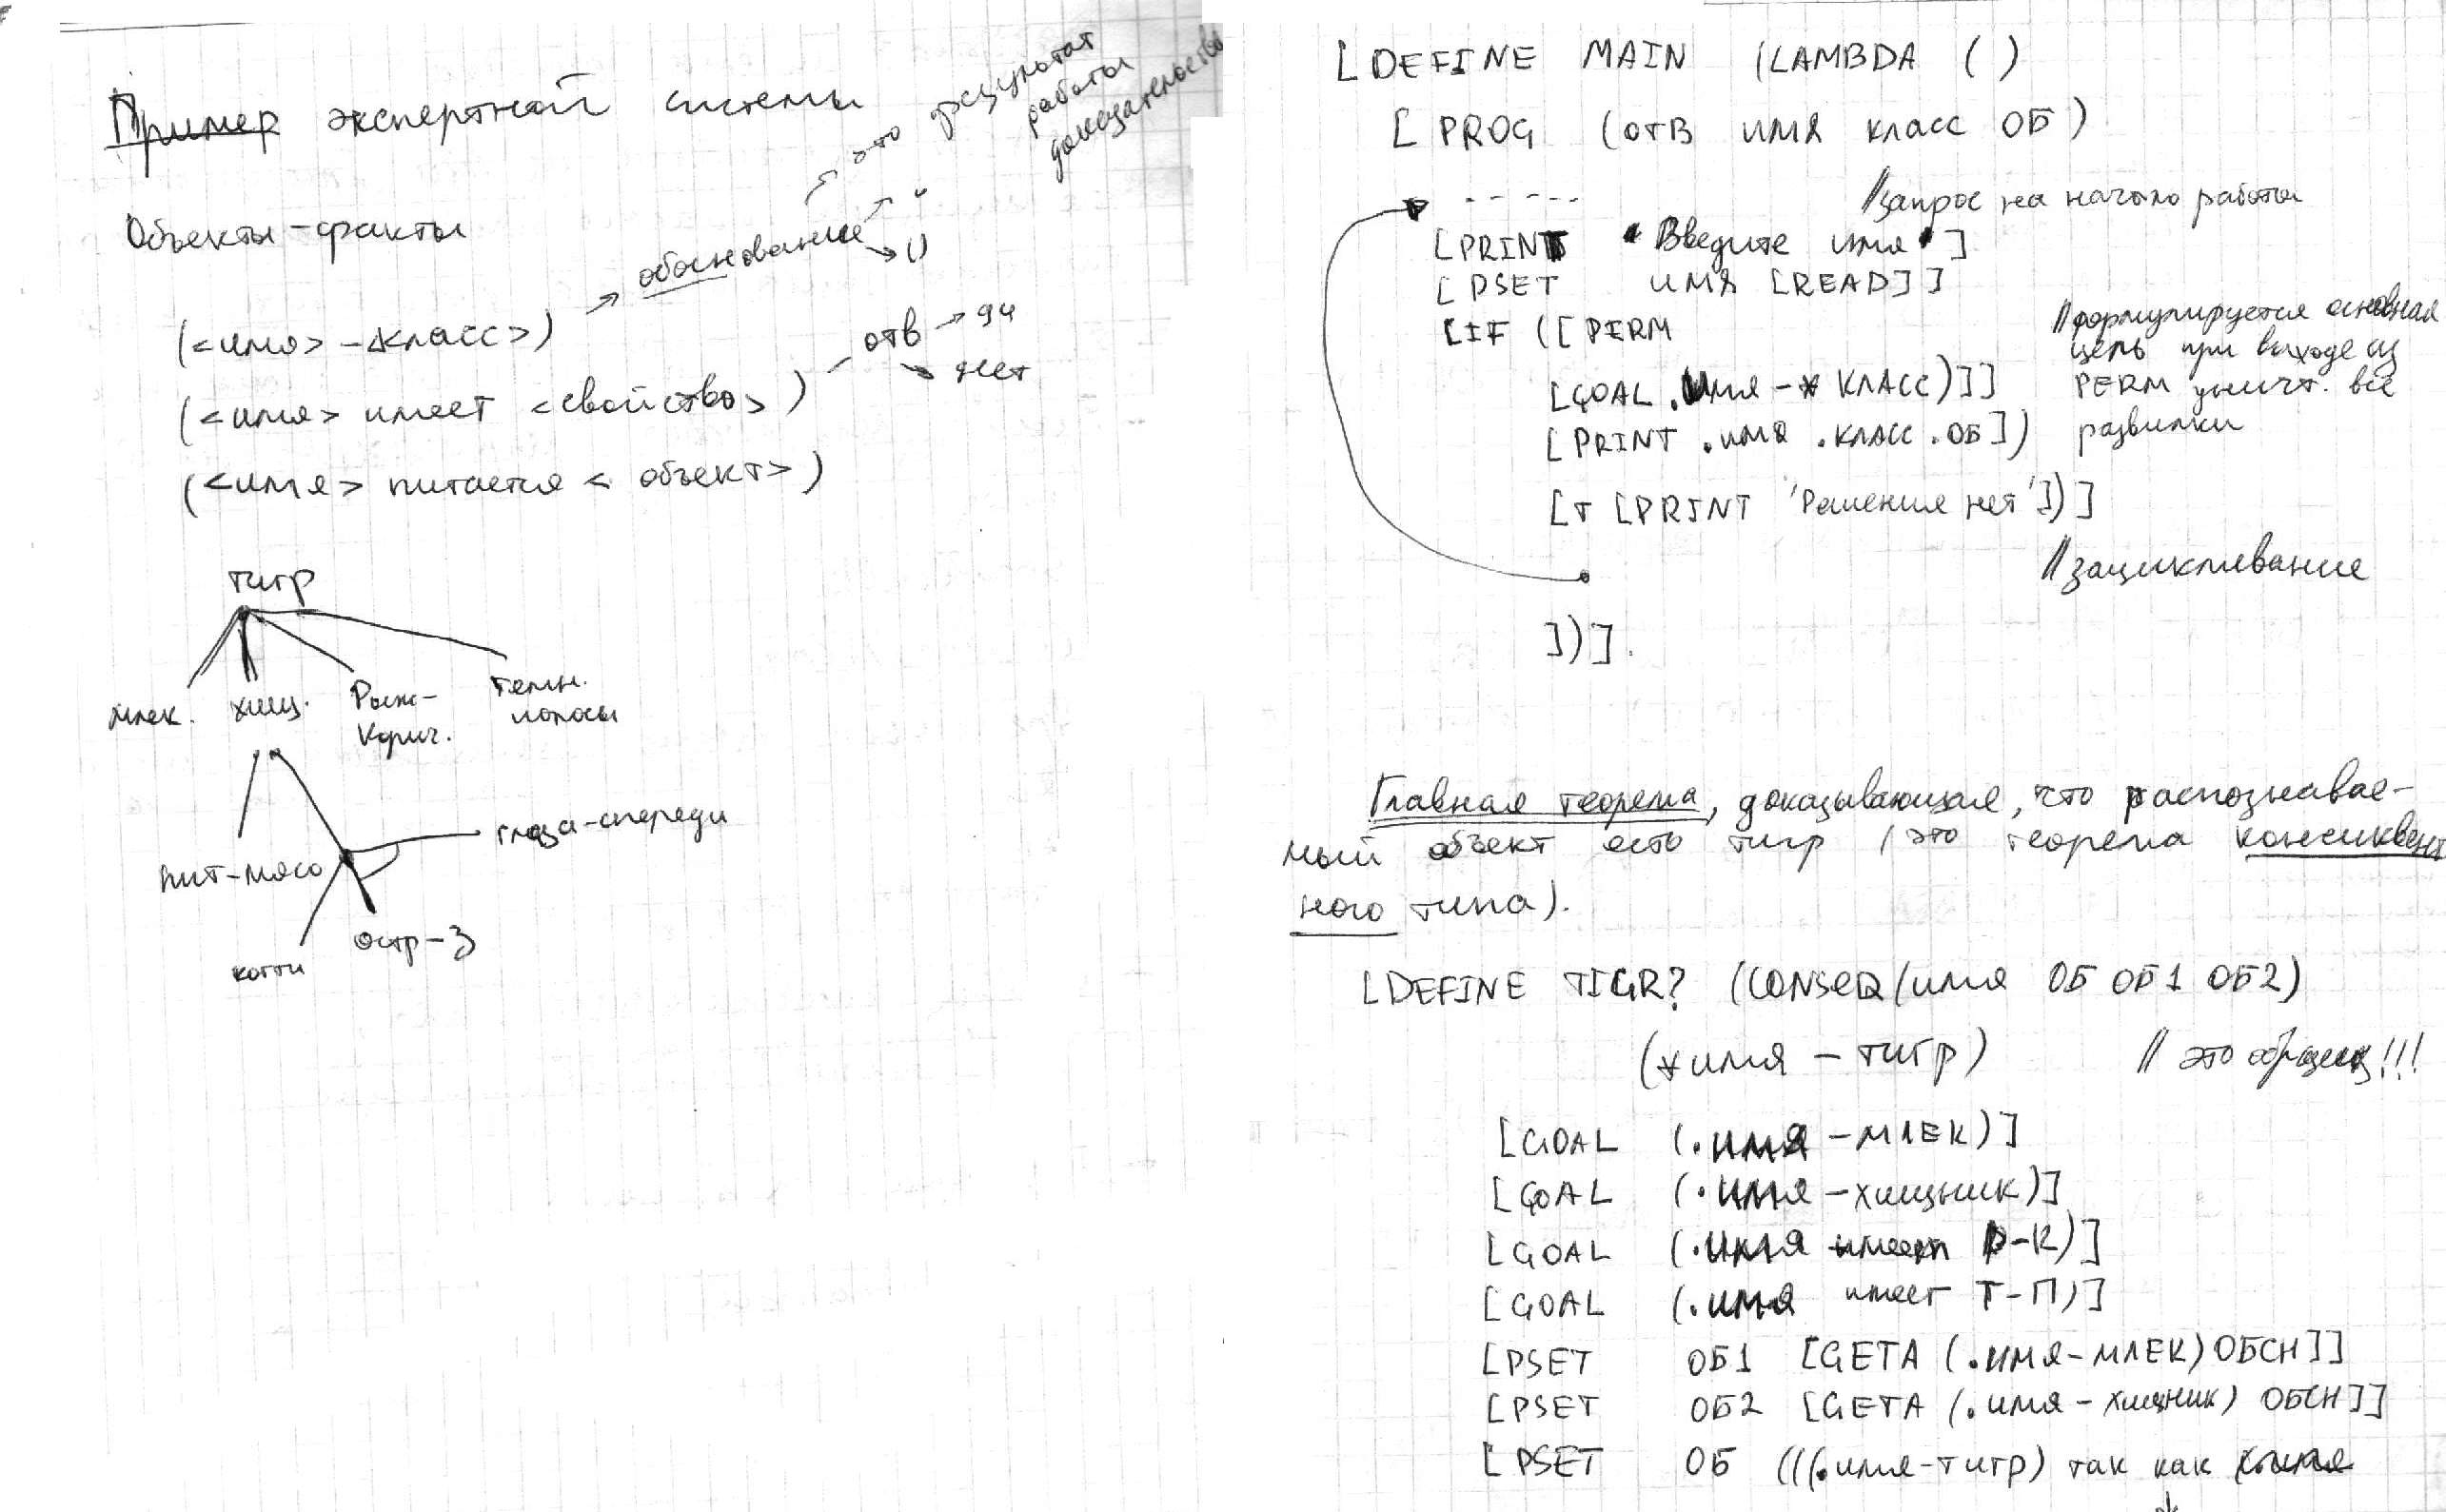 Пример экспертной системы
Объекты-факты
это результат
работы
доказательства
обоснование
()
(<имя> - <класс>)
отв → да
нет
(<имя> имеет <свойство>)
(<имя> питается <объект>)
тигр
млек. хищ. Рыж-
Корич.
темн.
полосы
пит-мясо
глаза-спереди
когти
остр-З
[DEFINE MAIN (LAMBDA ()
[PROG (отв имя класс ОБ)
- - - - - //запрос на начало работы
[PRINT "Введите имя"]
[PSET ИМЯ [READ]]
[IF ([PERM
//формулируется основная
цель при выходе из
PERM уничт. все
развилки
[GOAL .Имя - * КЛАСС)]]
[PRINT .имя .класс .ОБ])
[T [PRINT 'Решения нет'])]
//зацикливание
])].
Главная теорема, доказывающая, что распознавае-
мый объект есть тигр (это теорема консиквент
ного типа).
[DEFINE TIGR? (CONSEQ (имя ОБ ОБ1 ОБ2)
(*имя - тигр) // это образец!!!
[GOAL (.имя - МЛЕК)]
[GOAL (.имя - хищник)]
[GOAL (.имя имеет Р-К)]
[GOAL (.имя имеет Т-П)]
[PSET ОБ1 [GETA (.имя-МЛЕК) ОБСН]]
[PSET ОБ2 [GETA (.имя - хищник) ОБСН]]
[PSET ОБ (((.имя-тигр) так как